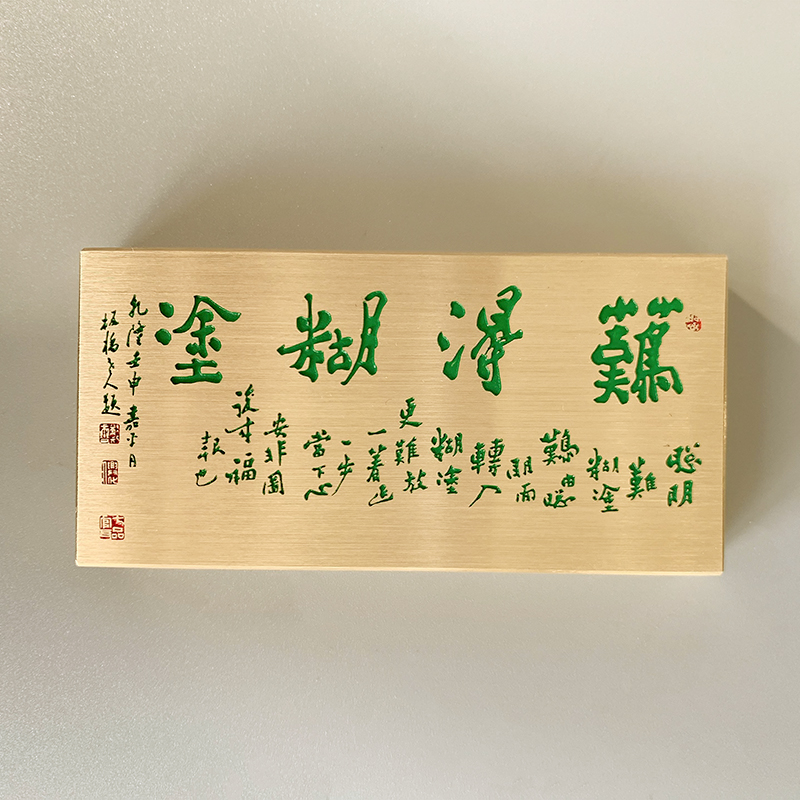 難得糊塗
聰明
難
糊塗
難由聰
明而
轉入
糊塗
更難放
一著退
一步
當下心
安非圖
後来福
報也
乾隆壬申嘉平月
板橋老人題